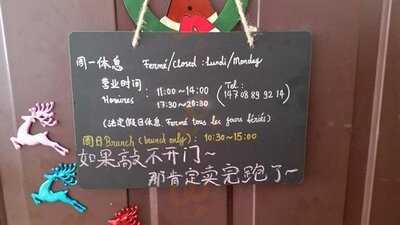 周一休息 Fermé/closed : lundi/Monday
营业时间 Horaires : 11:00~14:00
17:30~20:30
(Tel: 147 08 89 92 14)
(法定假日休息 Fermé tous les jours fériés)
周日Brunch (brunch only) : 10:30~15:00
如果敲不开门~
那肯定卖完跑了~